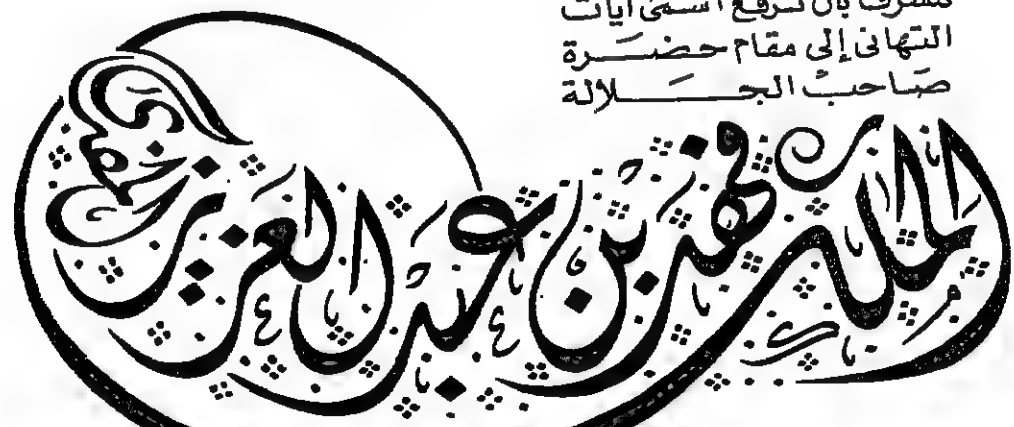 نتشرف بأن نرفع أسمى آيات
التهانى إلى مقام حضرة
صاحب الجلالة
الملك فهد بن عبد العزيز